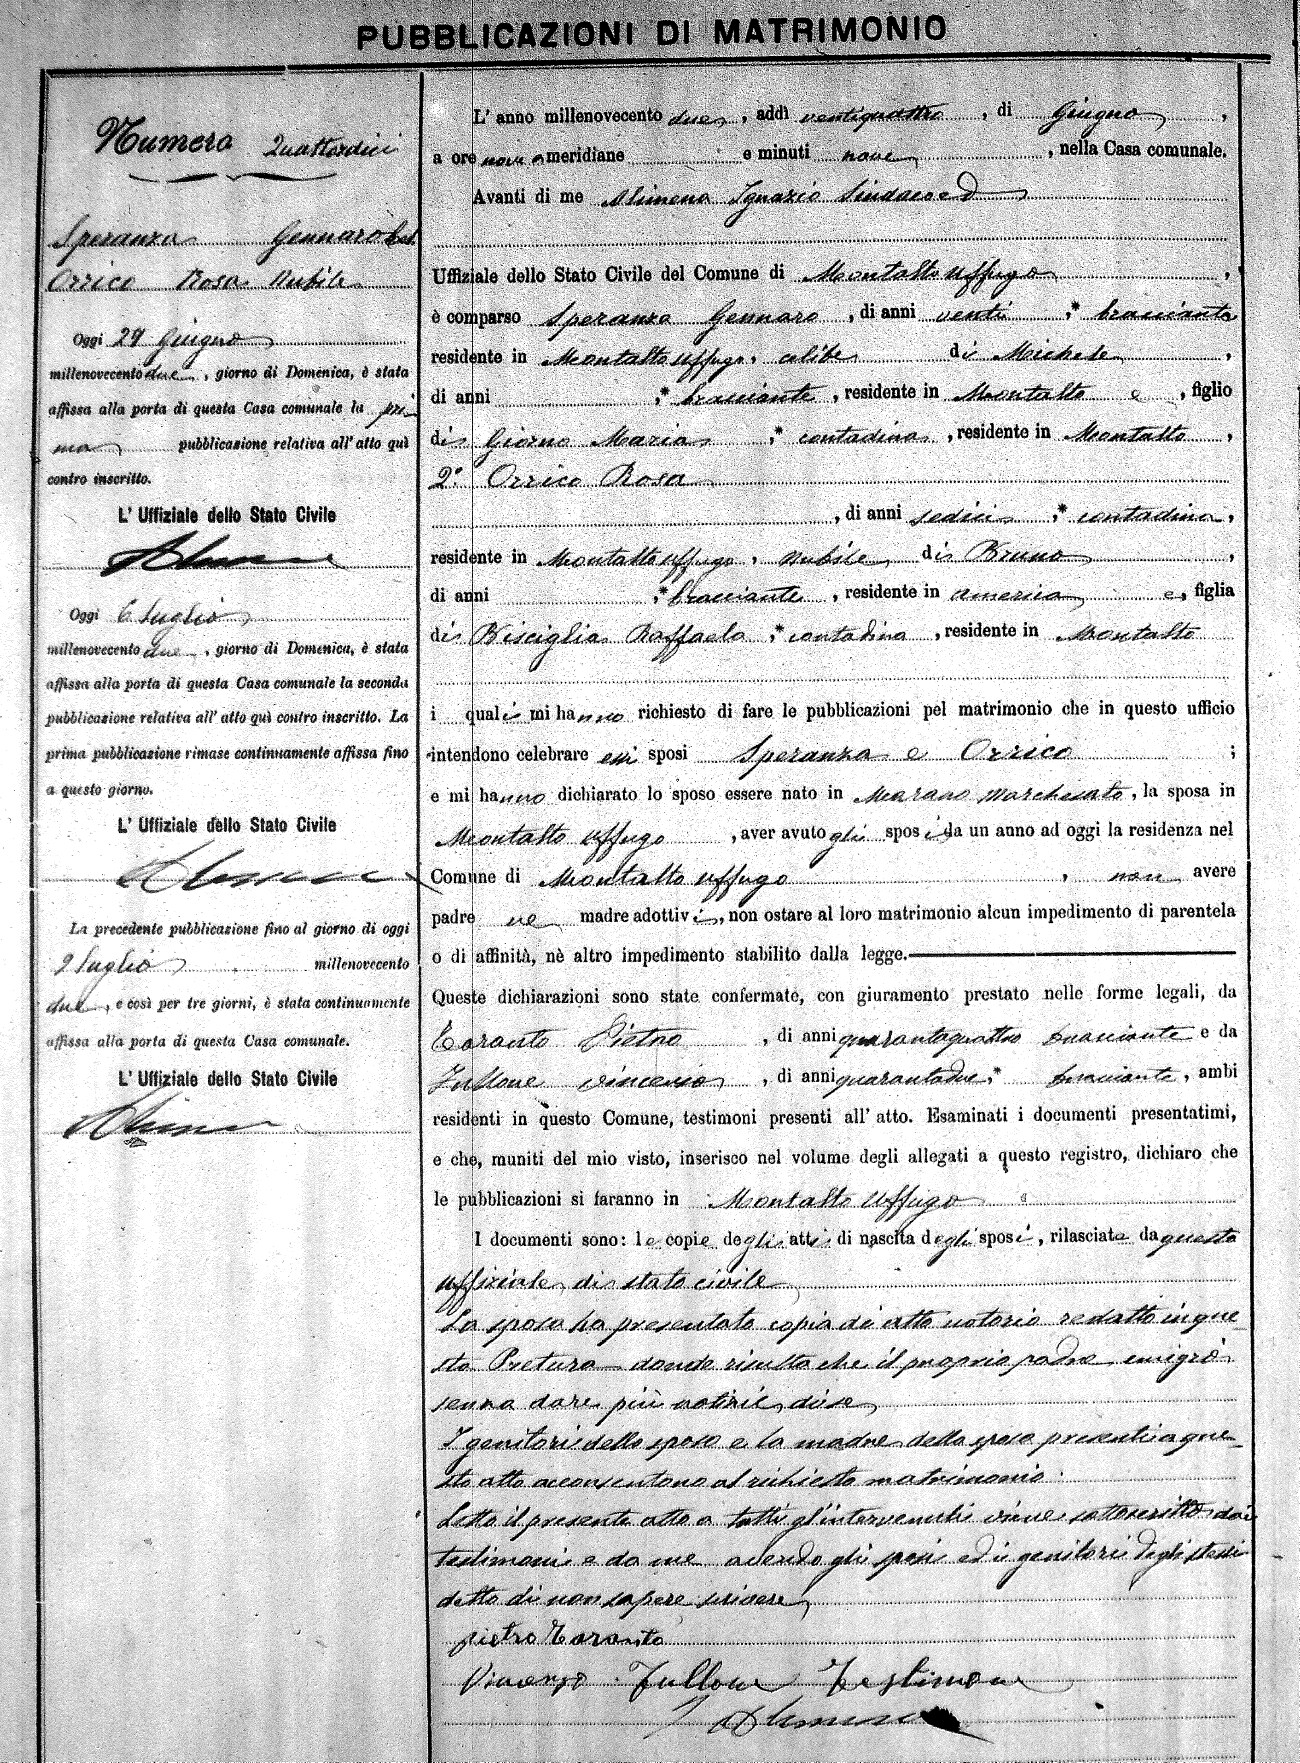 PUBBLICAZIONI DI MATRIMONIO
Numero Quattordici
Speranza Gennaro Cel.
Orrico Rosa Nubile
Oggi 29 Giugno
millenovecento due, giorno di Domenica, è stata
affissa alla porta di questa Casa comunale la pri-
ma pubblicazione relativa all' atto quì
contro inscritto.
L' Uffiziale dello Stato Civile
Oggi 6 Luglio
millenovecento due, giorno di Domenica, è stata
affissa alla porta di questa Casa comunale la seconda
pubblicazione relativa all' atto quì contro inscritto. La
prima pubblicazione rimase continuamente affissa fino
a questo giorno.
L' Uffiziale dello Stato Civile
La precedente pubblicazione fino al giorno di oggi
9 Luglio millenovecento
due, e così per tre giorni, è stata continuamente
affissa alla porta di questa Casa comunale.
L' Uffiziale dello Stato Civile
L' anno millenovecento due, addì ventiquattro, di Giugno,
a ore nove ameridiane e minuti nove, nella Casa comunale.
Avanti di me Alimena Ignazio Sindaco ed
Uffiziale dello Stato Civile del Comune di Montalto Uffugo,
è comparso Speranza Gennaro, di anni venti,* bracciante
residente in Montalto Uffugo, celibe di Michele,
di anni ,* bracciante, residente in Montalto e, figlio
di Giorno Maria,* contadina, residente in Montalto,
2° Orrico Rosa
, di anni sedici,* contadina,
residente in Montalto Uffugo, nubile di Bruno,
di anni ,* bracciante, residente in america e, figlia
di Bisciglia Raffaela,* contadina, residente in Montalto
i quali mi hanno richiesto di fare le pubblicazioni pel matrimonio che in questo ufficio
intendono celebrare essi sposi Speranza e Orrico ;
e mi hanno dichiarato lo sposo essere nato in Marano Marchesato, la sposa in
Montalto Uffugo, aver avuto gli sposi da un anno ad oggi la residenza nel
Comune di Montalto Uffugo, non avere
padre ne madre adottivi, non ostare al loro matrimonio alcun impedimento di parentela
o di affinità, nè altro impedimento stabilito dalla legge.
Queste dichiarazioni sono state confermate, con giuramento prestato nelle forme legali, da
Taranto Pietro, di anni quarantaquattro bracciante e da
Fullone Vincenzo, di anni quarantadue,* bracciante, ambi
residenti in questo Comune, testimoni presenti all' atto. Esaminati i documenti presentatimi,
e che, muniti del mio visto, inserisco nel volume degli allegati a questo registro, dichiaro che
le pubblicazioni si faranno in Montalto Uffugo
I documenti sono: le copie degli atti di nascita degli sposi, rilasciate da questo
uffiziale di stato civile
La sposa ha presentato copia di atto notorio redatto in que-
sta Pretura donde risulta che il proprio padre emigrò
senza dare più notizie di se
I genitori dello sposo e la madre della sposa presenti a que-
sto atto acconsentono al richiesto matrimonio.
Letto il presente atto a tutti gl'intervenuti viene sottoscritto dai
testimoni e da me avendo gli sposi ed i genitori degli stessi
detto di non sapere scrivere
pietro Taranto
Vincenzo Fullone Testimone